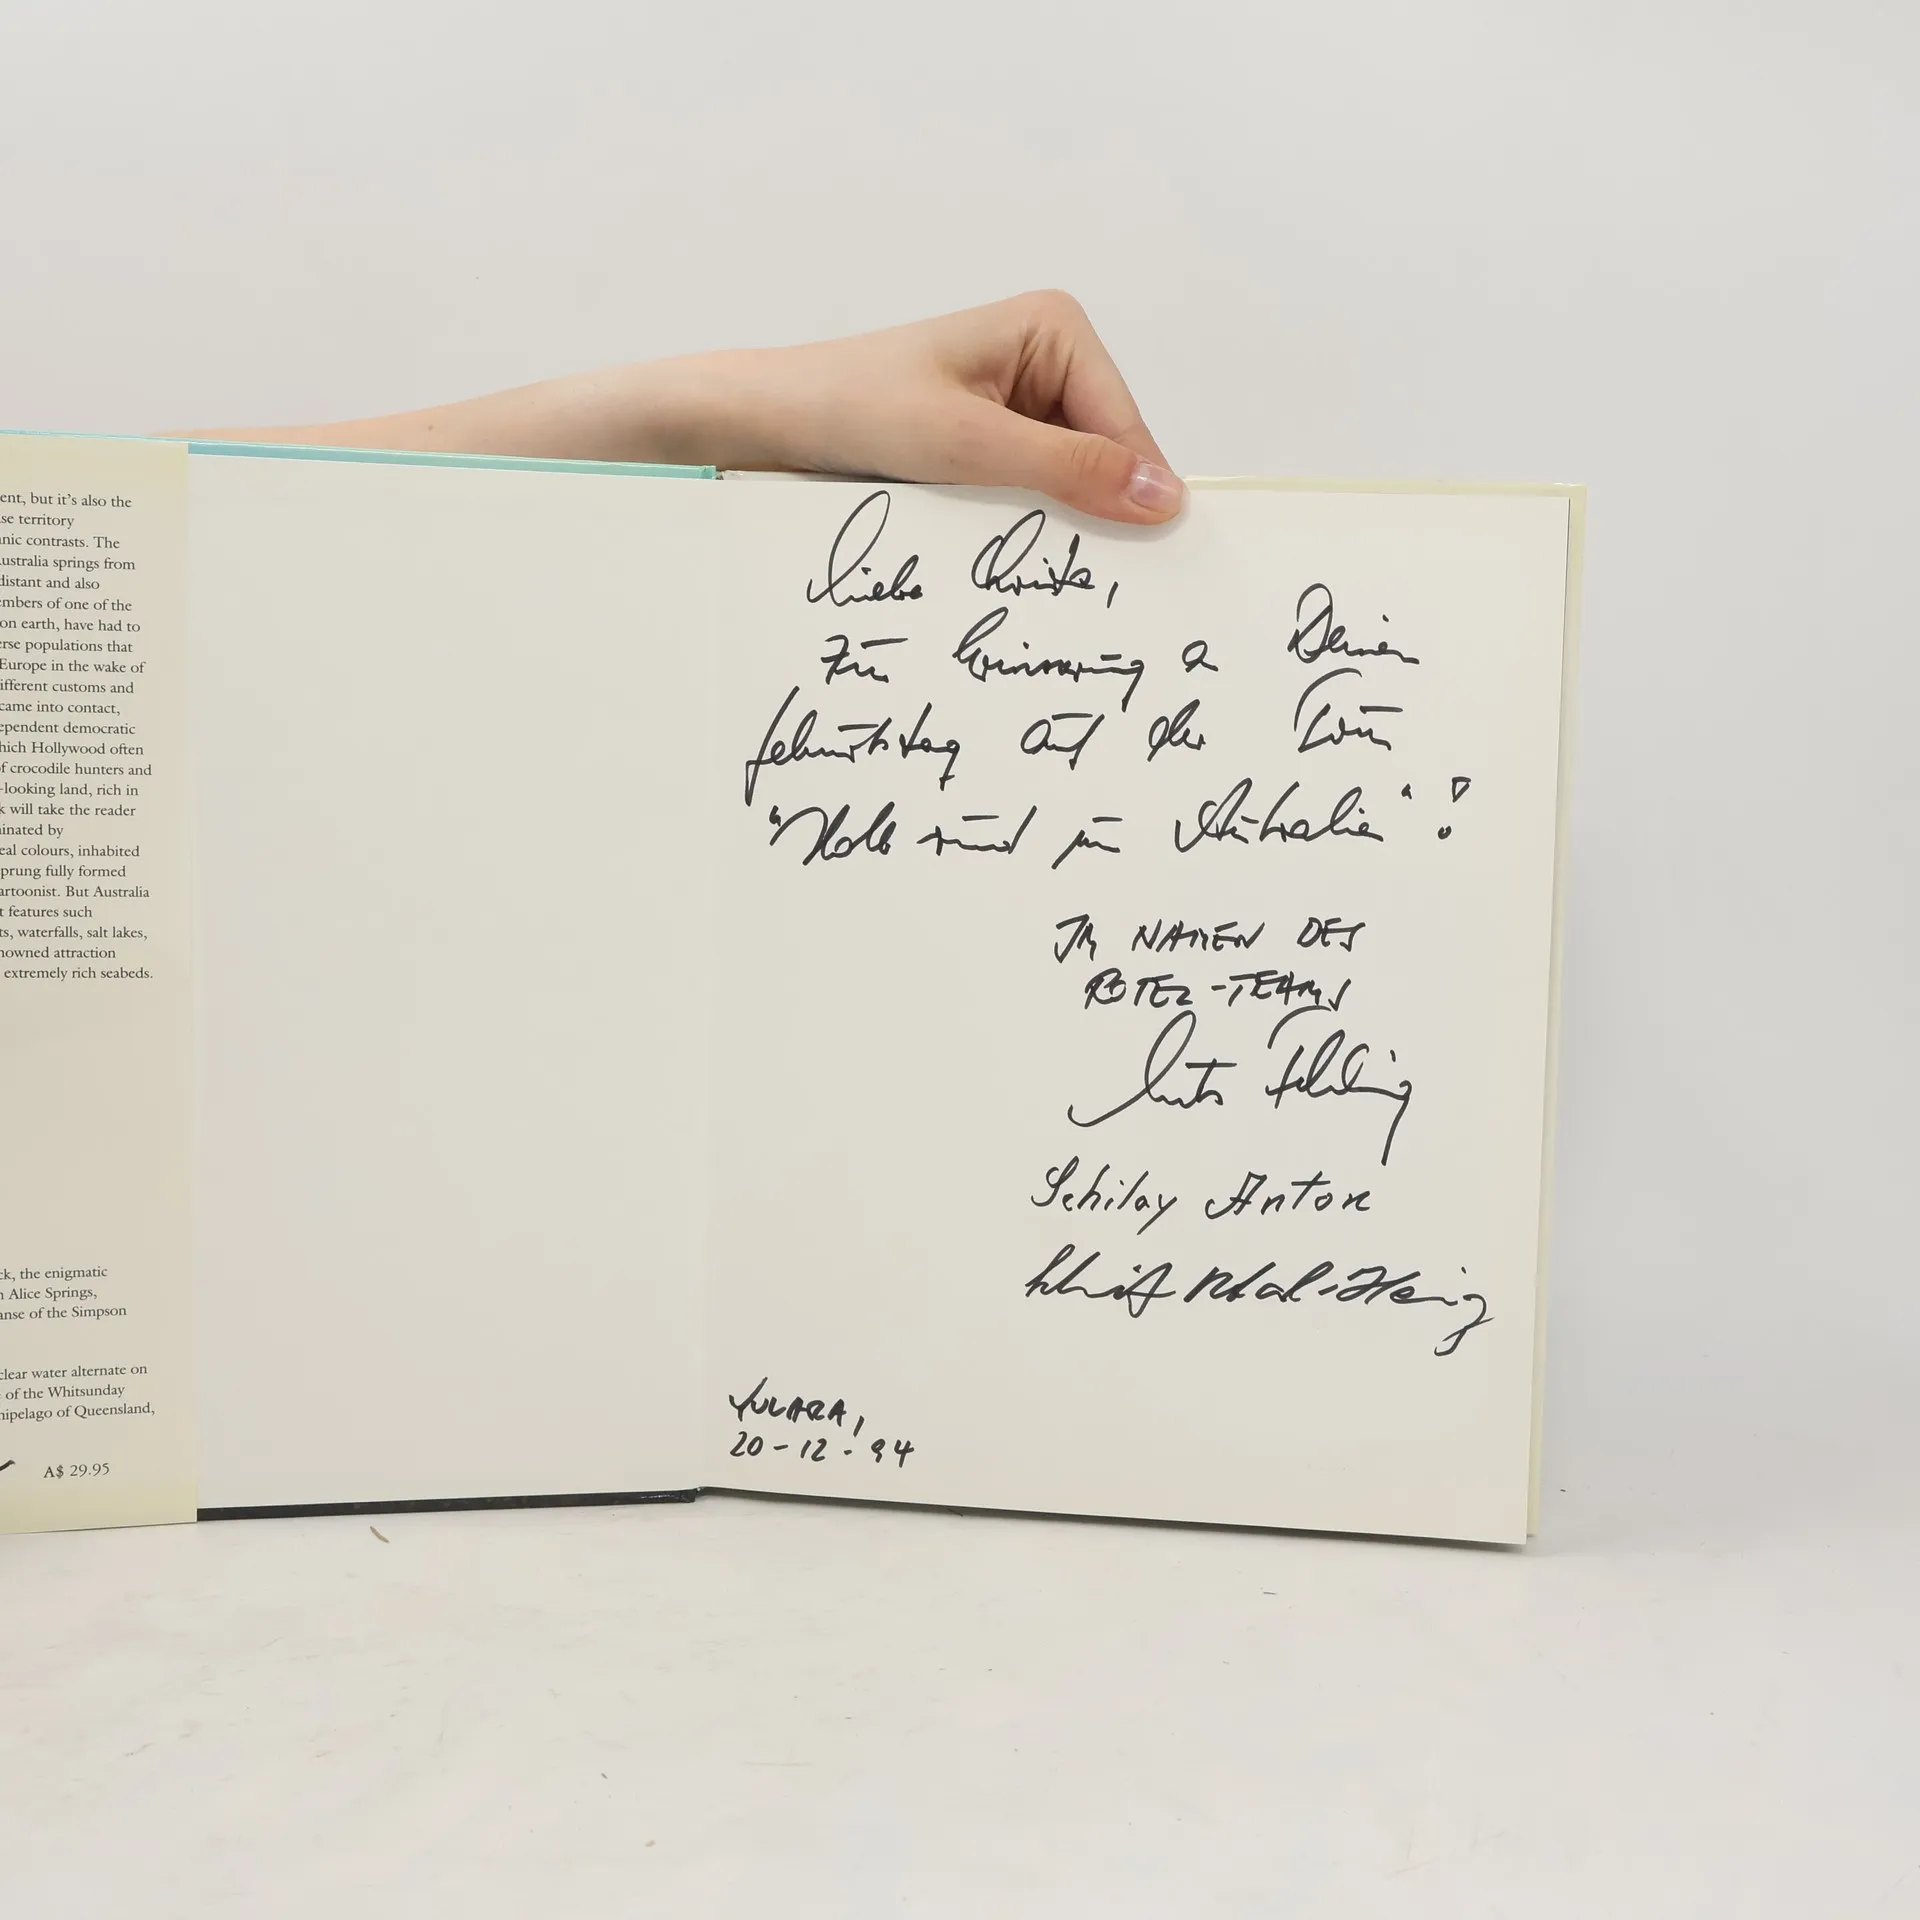 ent, but it's also the
se territory
nic contrasts. The
ustralia springs from
distant and also
embers of one of the
on earth, have had to
erse populations that
Europe in the wake of
ifferent customs and
came into contact,
ependent democratic
hich Hollywood often
f crocodile hunters and
-looking land, rich in
k will take the reader
inated by
eal colours, inhabited
prung fully formed
artoonist. But Australia
t features such
ts, waterfalls, salt lakes,
nowned attraction
extremely rich seabeds.
ck, the enigmatic
n Alice Springs,
anse of the Simpson
clear water alternate on
of the Whitsunday
hipelago of Queensland,
A$ 29.95
Liebe Christa,
zur Erinnerung a Deinen
Geburtstag auf der Tour
"Halb rund um Australien"!
IM NAMEN DES
ROTEL-TEAMS
Schilay Anton
Karl-Heinz
YULARA,
20-12-94